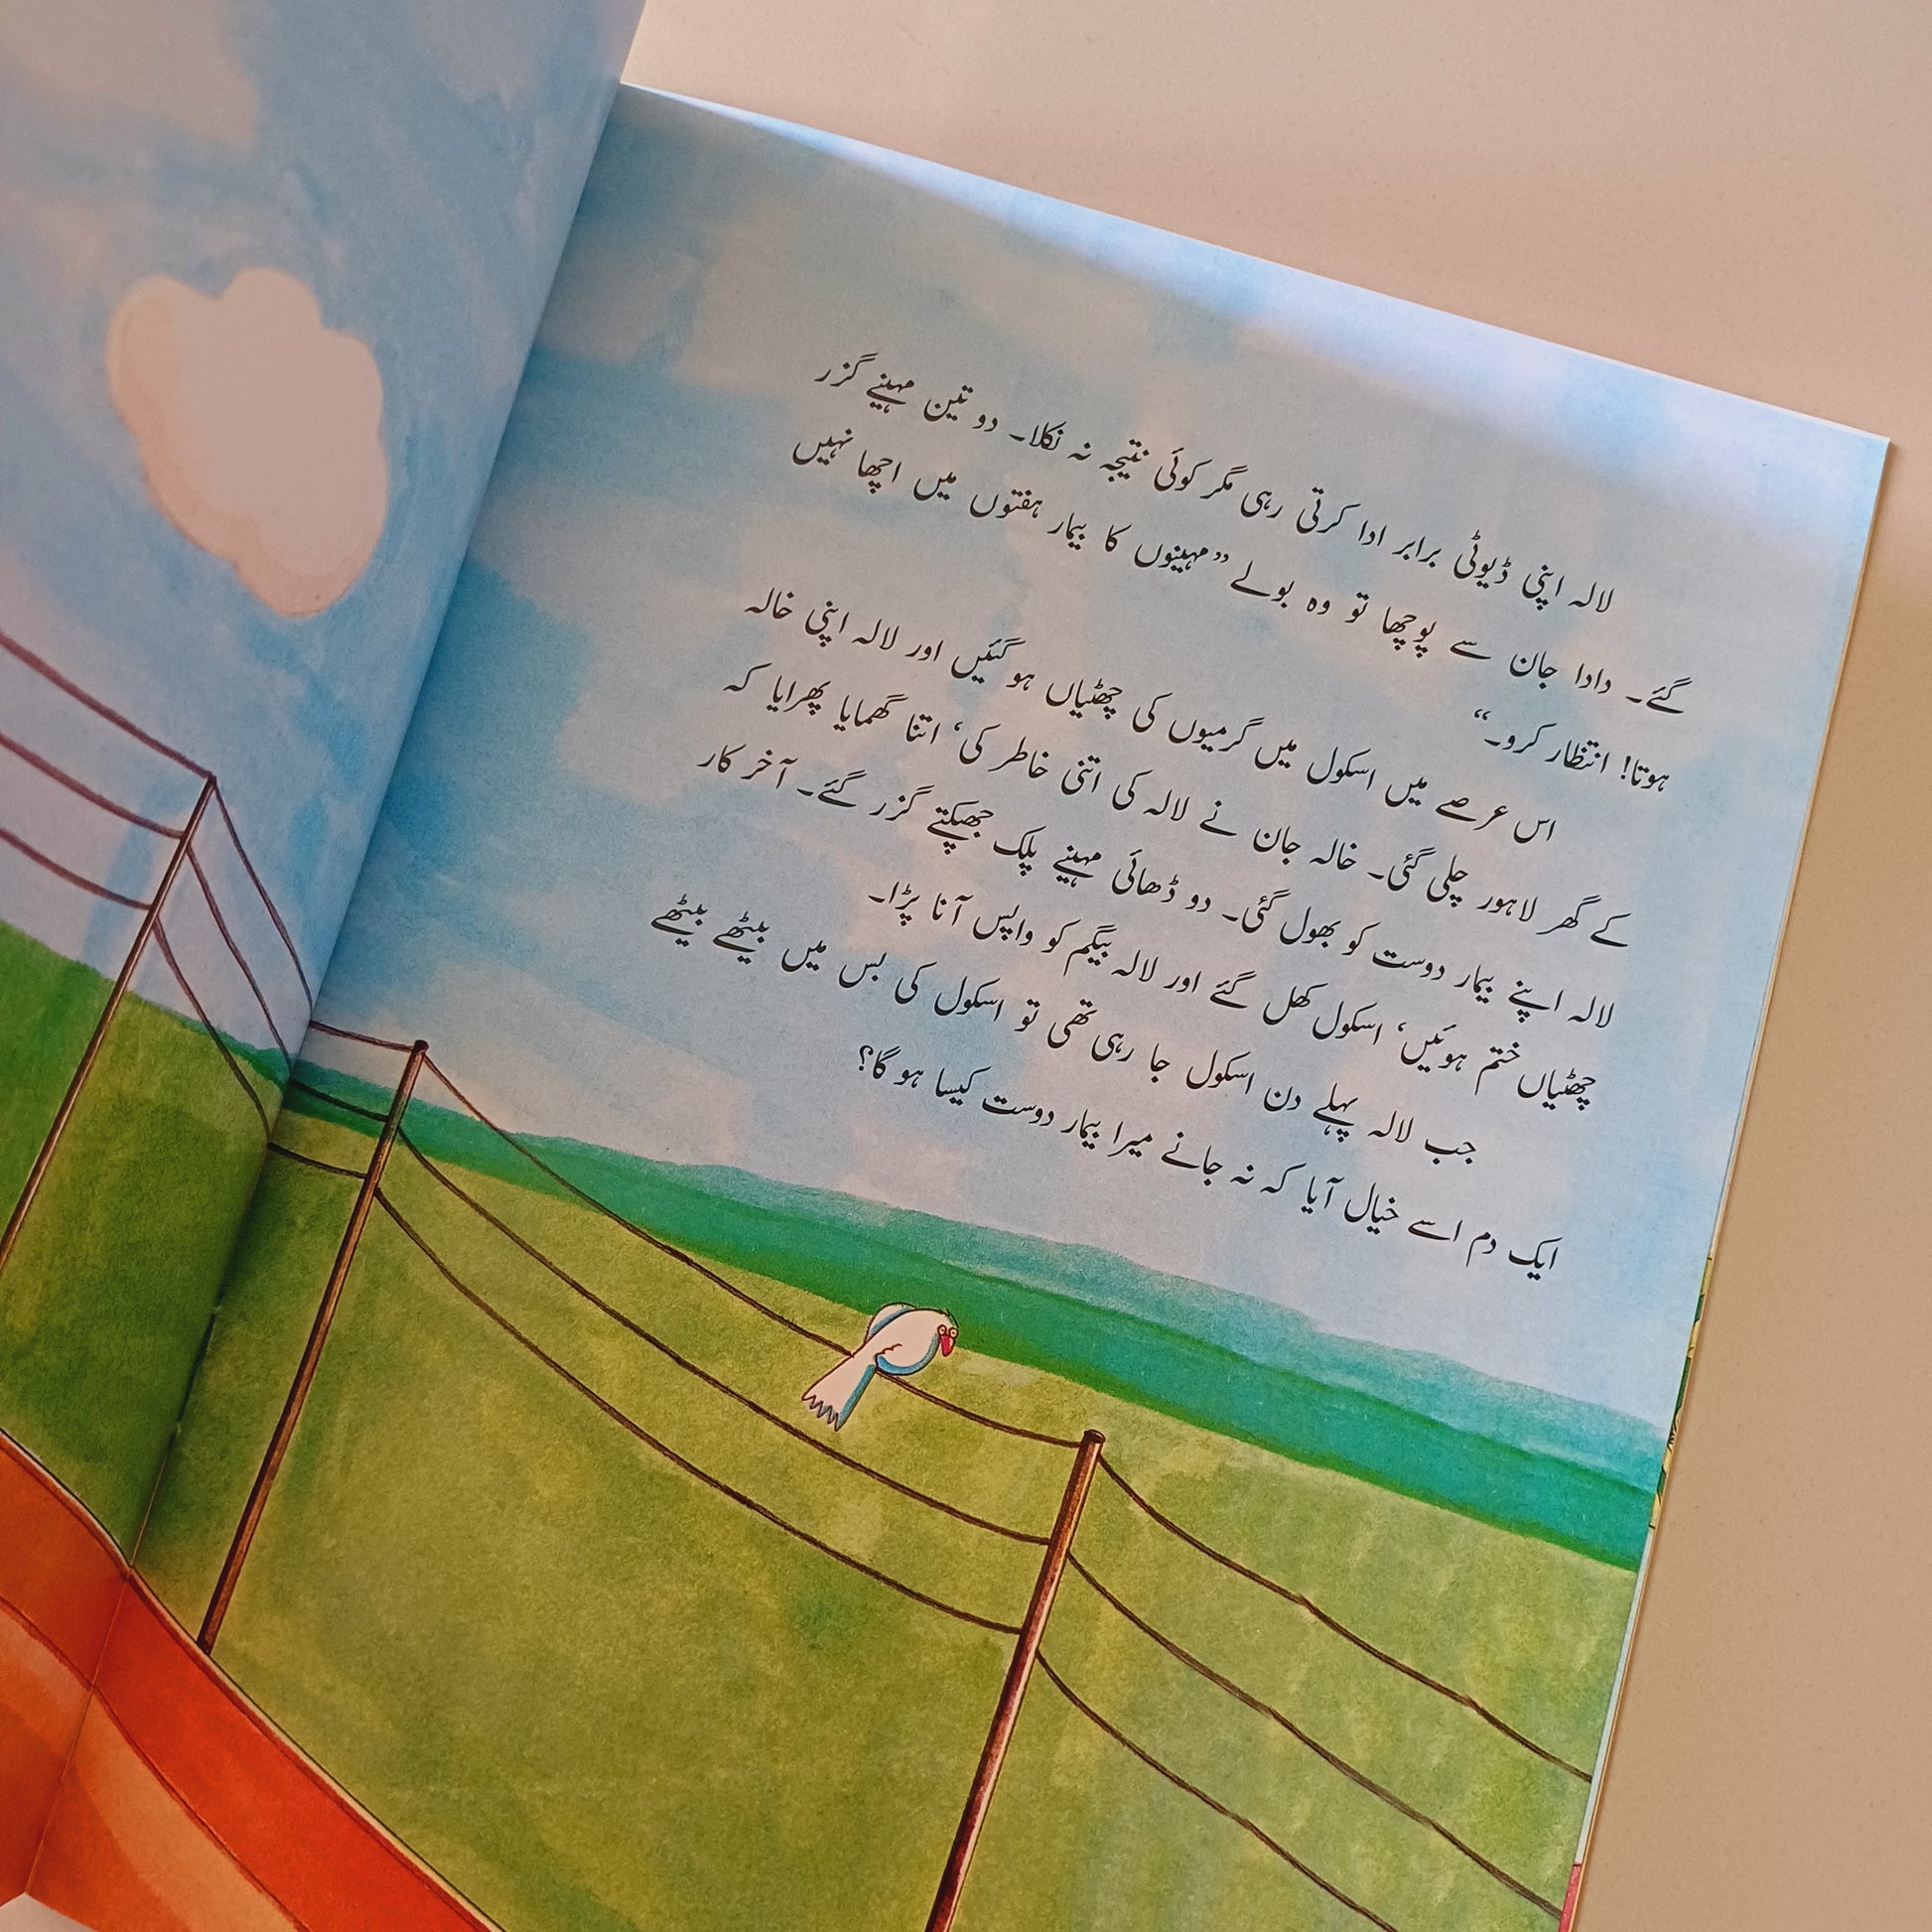 لالہ اپنی ڈیوٹی برابر ادا کرتی رہی مگر کوئی نتیجہ نہ نکلا۔ دو تین مہینے گزر
گئے۔ دادا جان سے پوچھا تو وہ بولے ”مہینوں کا بیمار ہفتوں میں اچھا نہیں
ہوتا! انتظار کرو۔“
اس عرصے میں اسکول میں گرمیوں کی چھٹیاں ہو گئیں اور لالہ اپنی خالہ
کے گھر لاہور چلی گئی۔ خالہ جان نے لالہ کی اتنی خاطر کی، اتنا گھمایا پھرایا کہ
لالہ اپنے بیمار دوست کو بھول گئی۔ دو ڈھائی مہینے پلک جھپکتے گزر گئے۔ آخر کار
چھٹیاں ختم ہوئیں، اسکول کھل گئے اور لالہ بیگم کو واپس آنا پڑا۔
جب لالہ پہلے دن اسکول جا رہی تھی تو اسکول کی بس میں بیٹھے بیٹھے
ایک دم اسے خیال آیا کہ نہ جانے میرا بیمار دوست کیسا ہو گا؟